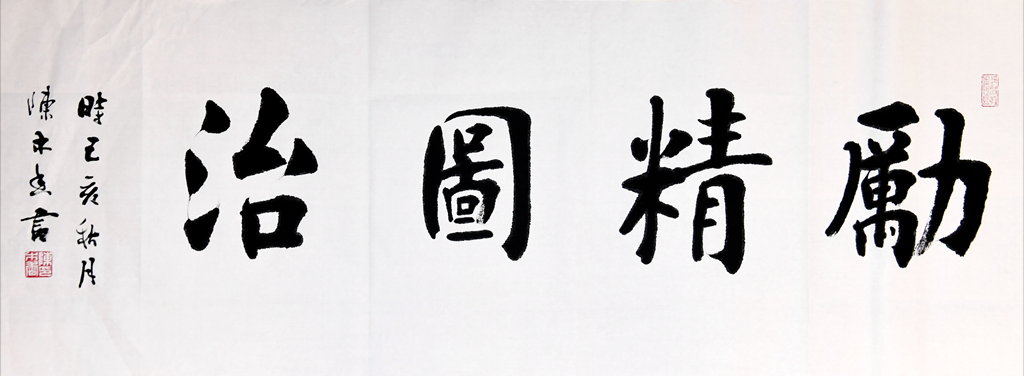 勵精圖治
時己亥秋月
陳木書